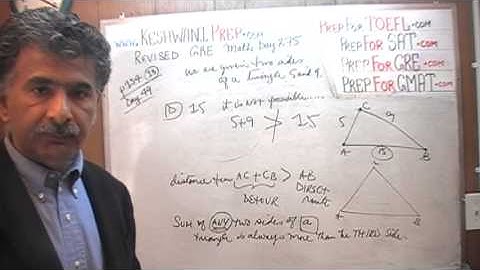 www.KESHWANI PREP.com
REVISED GRE Math Day 275
we are given two sides
of a triangle 5 and 9.
Day 49
D 15 it is not possible.....
5+9 > 15
distance from AC + CB > AB
DETOUR
DIRECT
Route
SUM of ANY two sides of a
triangle is always more than the THIRD side.
PREP FOR TOEFL.com
PREP FOR SAT.com
PREP FOR GRE.com
PREP FOR GMAT.com
C
5
9
A
15
B